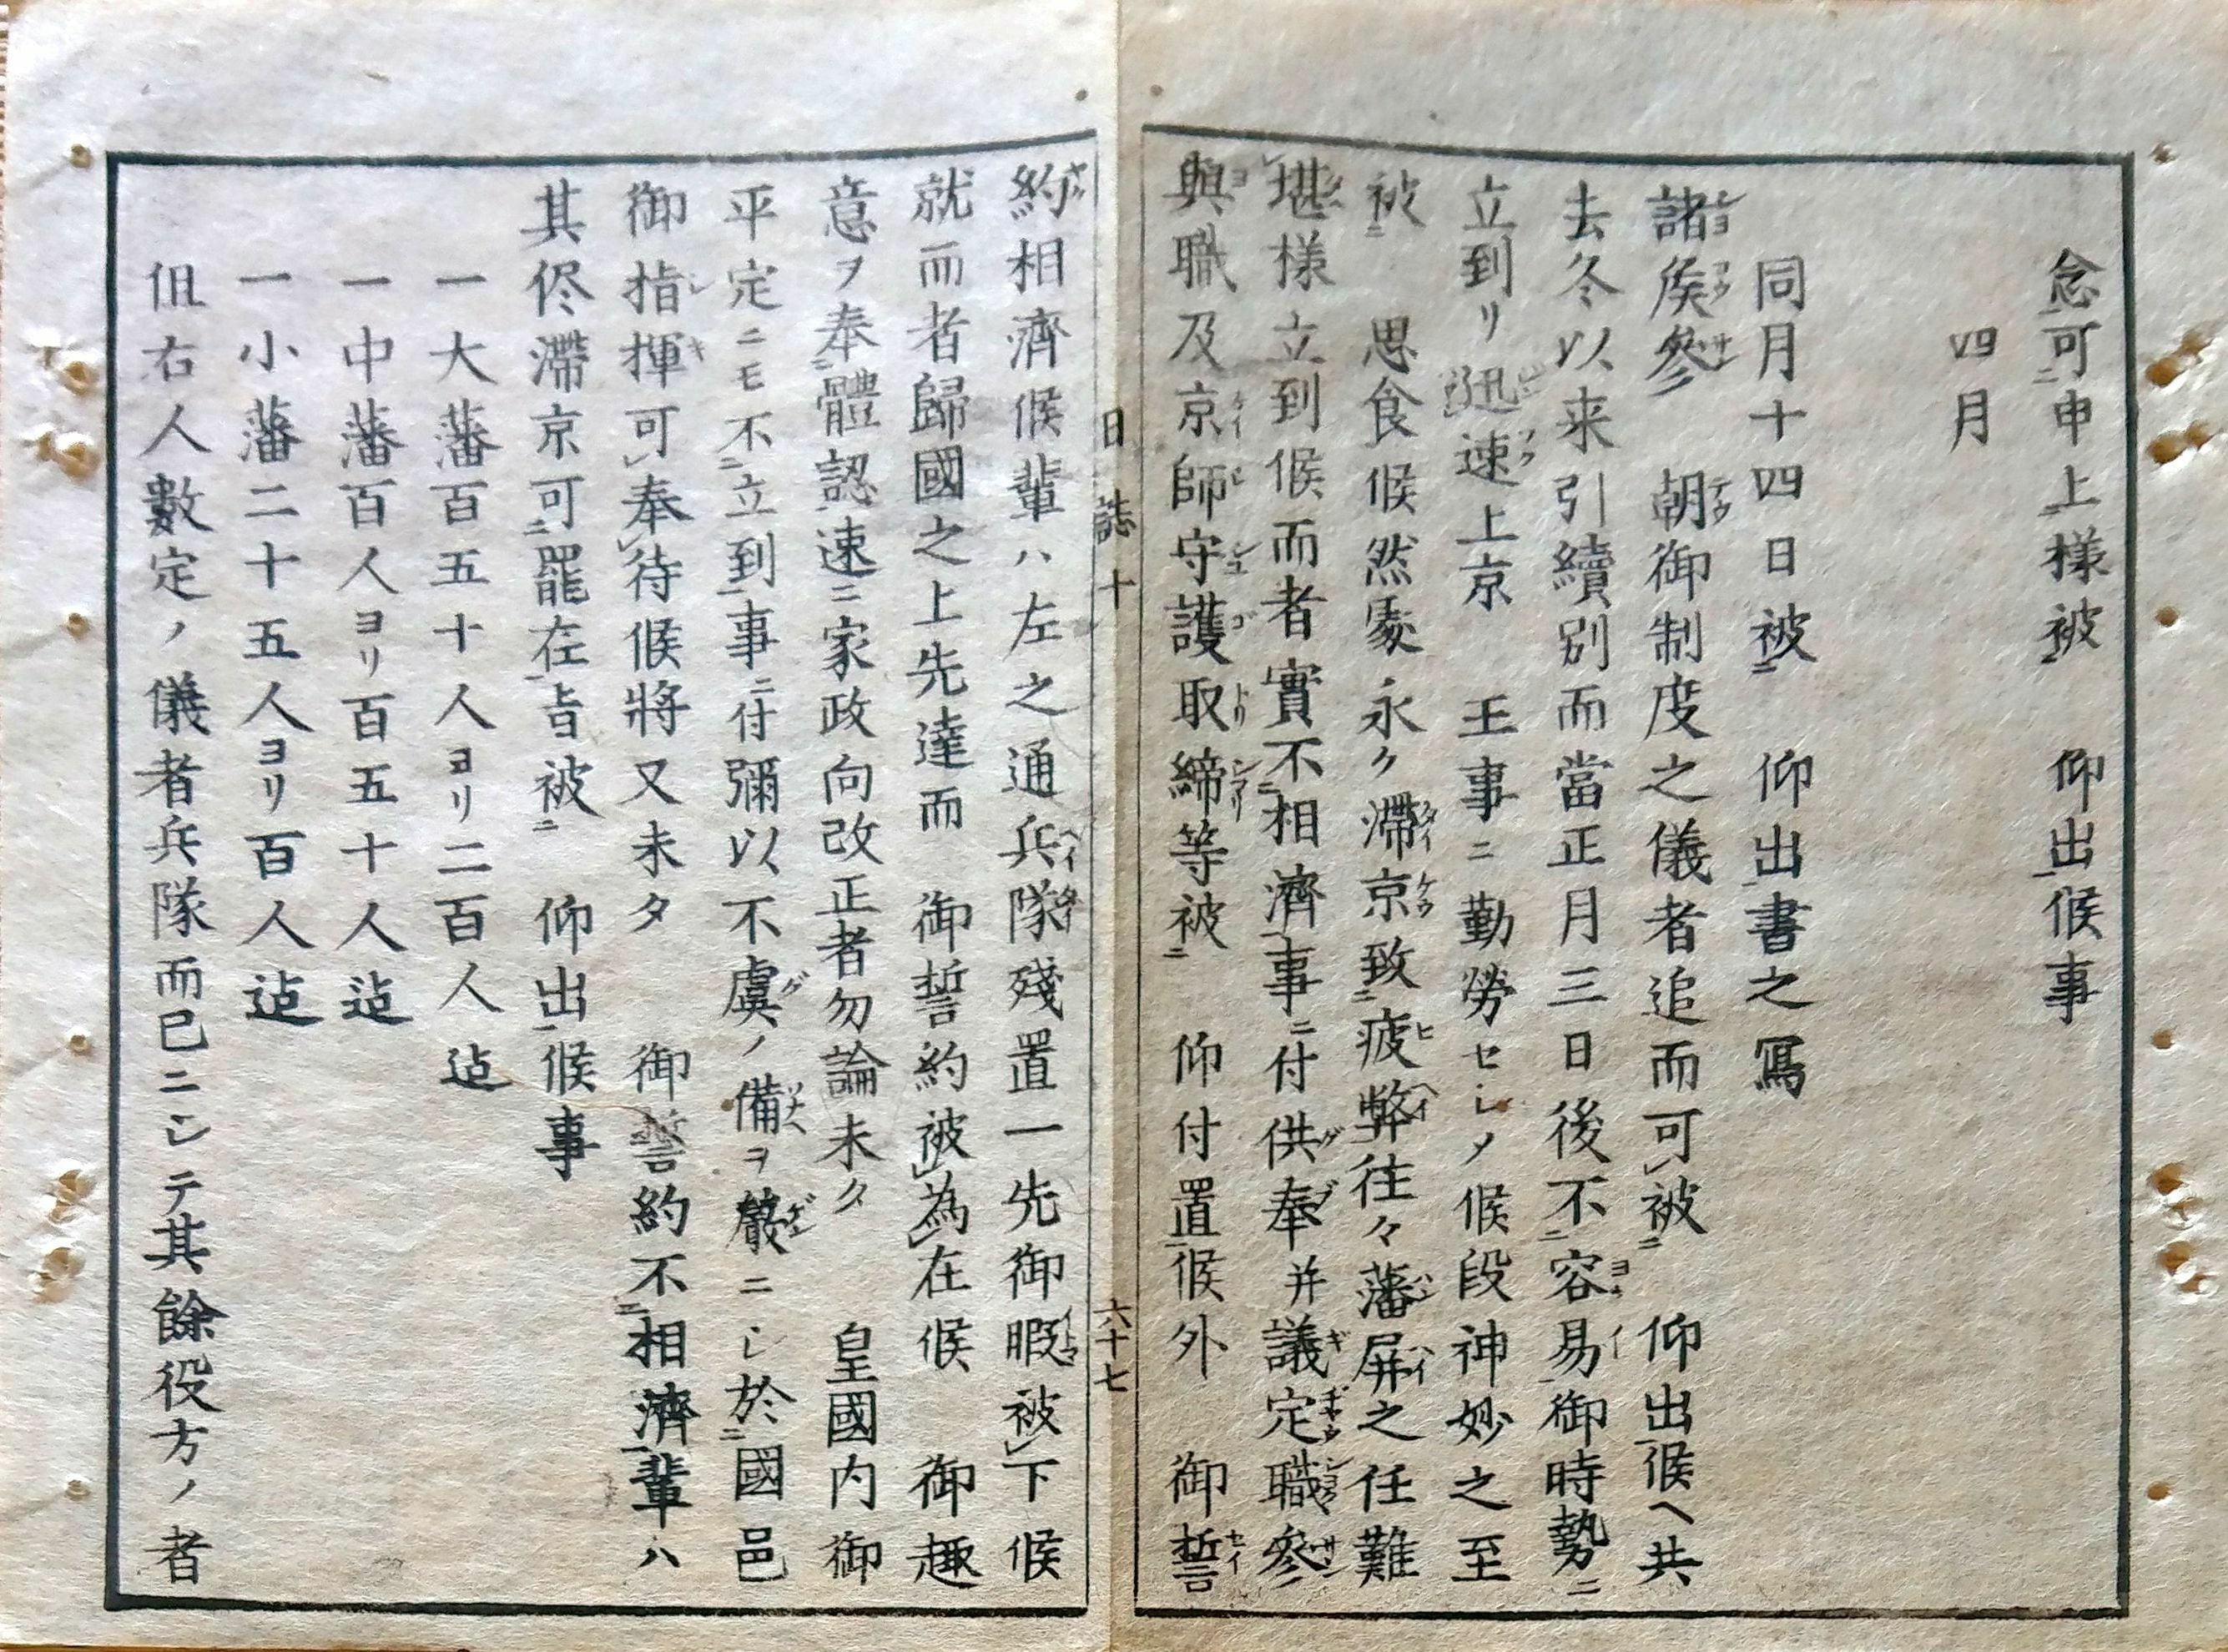 念可申上様被　仰出候事
四月
同月十四日被　仰出書之寫
諸矦參　朝御制度之儀者追而可被　仰出候ヘ共
去冬以来引續別而當正月三日後不容易御時勢ニ
立到リ迅速上京　王事ニ勤勞セシメ候段神妙之至
被　思食候然處永ク滯京致疲弊往々藩屏之任難
堪様立到候而者實不相濟事ニ付供奉并議定職參
與職及京師守護取締等被　仰付置候外　御誓
約相濟候輩ハ左之通兵隊殘置一先御暇被下候
就而者歸國之上先達而　御誓約被為在候　御趣
意ヲ奉體認速ニ家政向改正者勿論未タ　皇國内御
平定ニモ不立到事ニ付彌以不虞ノ備ヲ嚴ニシ於國邑
御指揮可奉待候將又未タ　御誓約不相濟輩ハ
其侭滯京可罷在旨被　仰出候事
一大藩百五十人ヨリ二百人迠
一中藩百人ヨリ百五十人迠
一小藩二十五人ヨリ百人迠
伹右人數定ノ儀者兵隊而已ニシテ其餘役方ノ者
日誌十
六十七